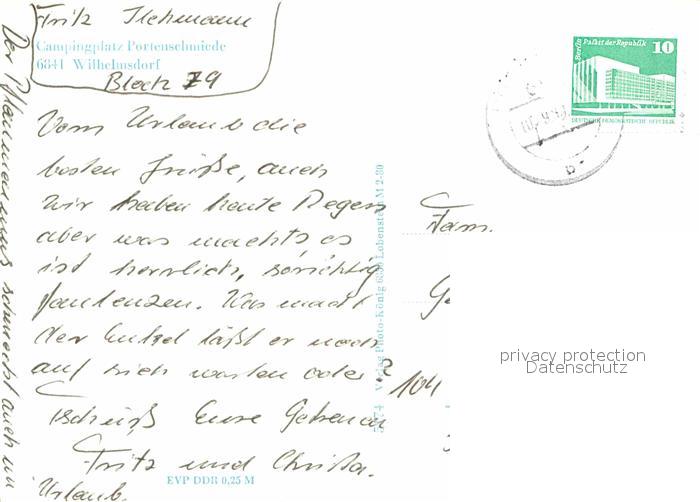 Fritz Ilchmann
Campingplatz Portenschmiede
6841 Wilhelmsdorf
Block 79
Vom Urlaub die
besten Grüße, auch
wir haben heute Regen
aber was machts es
ist herrlich, so richtig
faulenzen. Was macht
der Enkel läßt er noch
auf sich warten oder?
Tschüß Eure Getreuen
Fritz und Christa.
Der Pflaumenmus schmeckt auch im
Urlaub.
EVP DDR 0,25 M
Verlag Photo-König 6850 Lobenstein M 2-80
Berlin Palast der Republik
10
DEUTSCHE DEMOKRATISCHE REPUBLIK
Fam.
G
104
privacy protection
Datenschutz